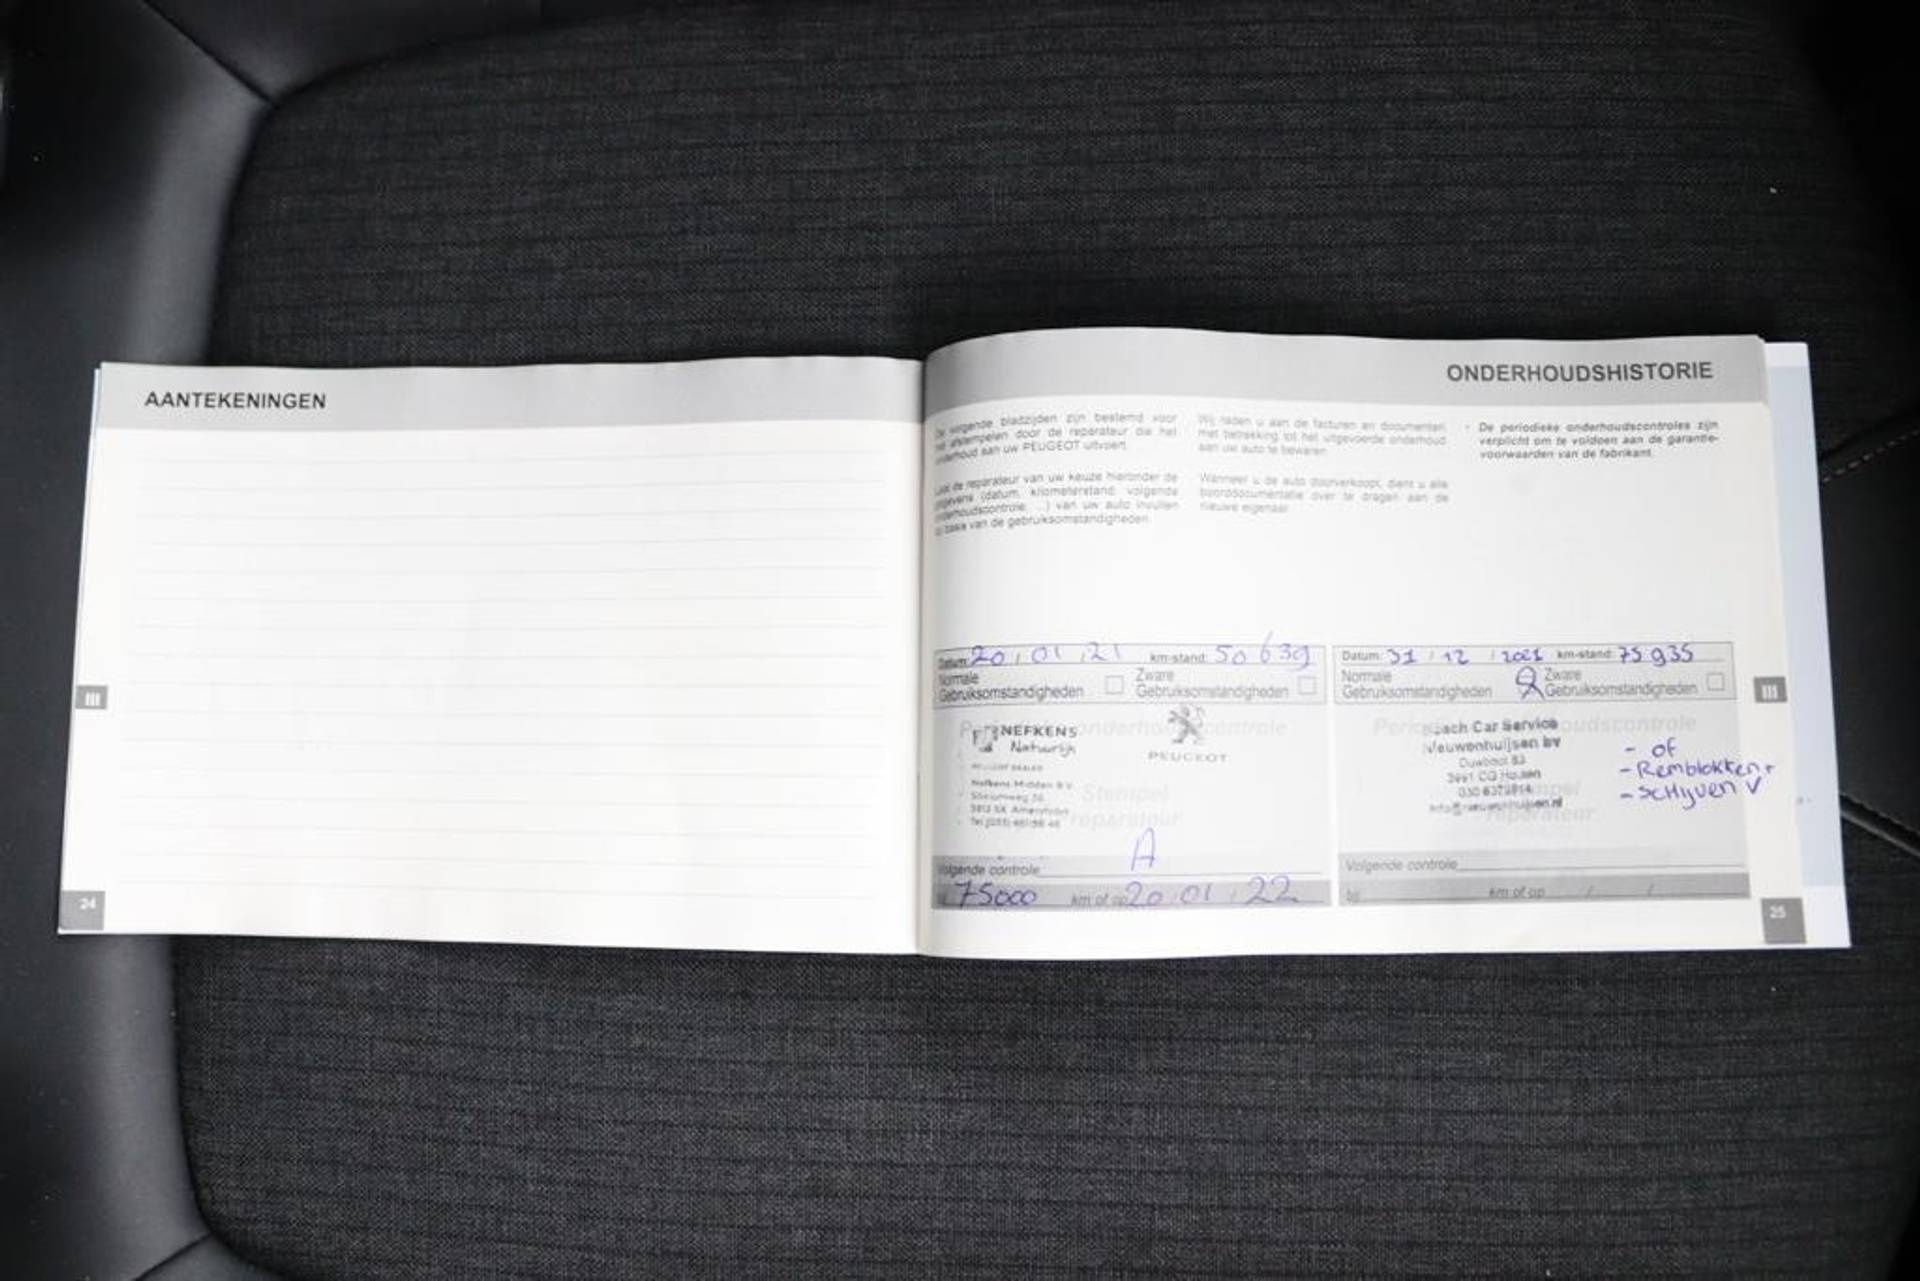 AANTEKENINGEN
III
24
ONDERHOUDSHISTORIE
De volgende bladzijden zijn bestemd voor
het afstempelen door de reparateur die het
onderhoud aan uw PEUGEOT uitvoert.
Laat de reparateur van uw keuze hieronder de
gegevens (datum, kilometerstand, volgende
onderhoudscontrole, ...) van uw auto invullen
op basis van de gebruiksomstandigheden.
Wij raden u aan de facturen en documenten
met betrekking tot het uitgevoerde onderhoud
aan uw auto te bewaren.
Wanneer u de auto doorverkoopt, dient u alle
boorddocumentatie over te dragen aan de
nieuwe eigenaar.
De periodieke onderhoudscontroles zijn
verplicht om te voldoen aan de garantie-
voorwaarden van de fabrikant.
Datum: 20 / 01 / 21 km-stand: 50 639
Normale Zware
Gebruiksomstandigheden Gebruiksomstandigheden
Periodieke onderhoudscontrole
NEFKENS
Natuurlijk
PEUGEOT DEALER
PEUGEOT
Nefkens Midden B.V.
Amersfoort
Stempel
reparateur
A
Volgende controle
75000 km of op 20 / 01 / 22
Datum: 31 / 12 / 2021 km-stand: 75 935
Normale Zware
Gebruiksomstandigheden Gebruiksomstandigheden
Car Service
Nieuwenhuijsen bv
Houten
reparateur
- of
- Remblokken +
- scHijven V
Volgende controle
km of op / /
III
25